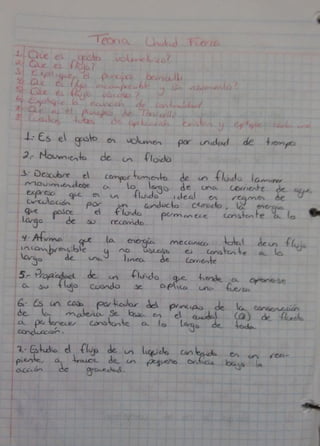 Teoria Unidad Fierro
1. Que es gasto volumetrico?
2. Que es flujo?
3. Explique el principio bernoulli
4. Que es flujo incompresible y sin
5. Que es flujo viscoso?
6. Explique la ecuacion de continuidad
7. Que es el principio de Torricelli
8. de aplicación existen y explique cada una
1.- Es el gasto en volumen por unidad de tiempo
2.- Movimiento de un fluido
3. Describe el comportamiento de un fluido laminar
moviendose a lo largo de una corriente de agua
expresa que en un fluido ideal en regimen de
circulación por un conducto cerrado, la energia
que posee el fluido permanece constante a lo
largo de su recorrido.
4. Afirma que la energía mecanica total de un flujo
incompresible y no viscoso es constante a lo
largo de una linea de corriente
5.- Propiedad de un fluido que tiende a oponerse
a su flujo cuando se aplica una fuerza
6. Es un caso particular del principio de la conservación
de la materia se basa en el caudal (Q) de fluido
a permanecer constante a lo largo de toda
conducción.
7.- Estudia el flujo de un liquido contenido en un reci-
piente, a traves de un pequeño orificio bajo la
acción de gravedad.